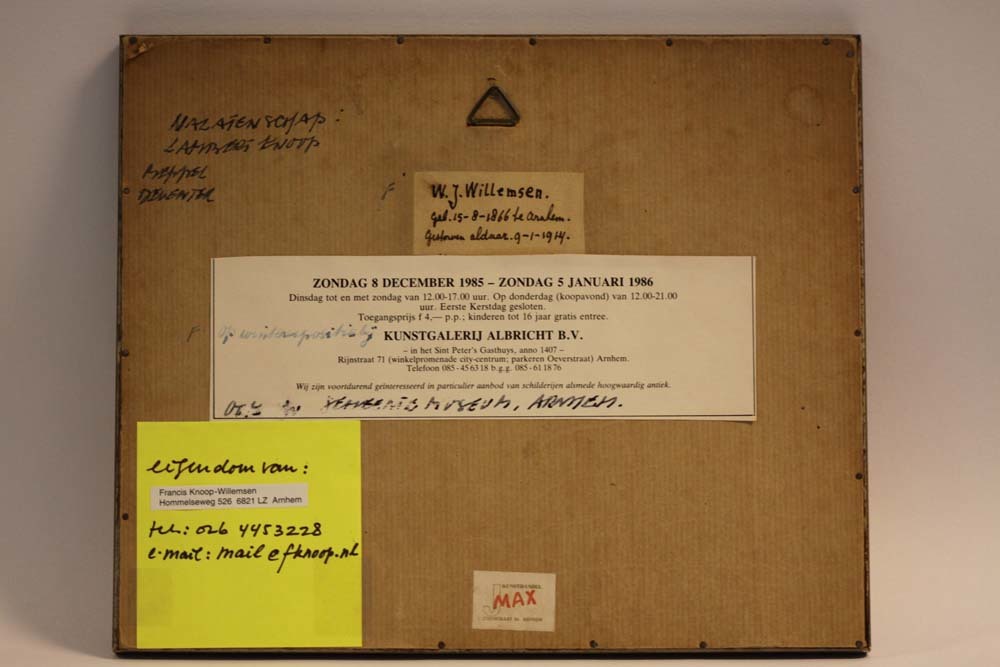 NALATENSCHAP:
LAMBERT KNOOP
MEPPEL
DEVENTER
W.J. Willemsen.
geb. 15-8-1866 te Arnhem.
Gestorven aldaar. 9-1-1914.
ZONDAG 8 DECEMBER 1985 – ZONDAG 5 JANUARI 1986
Dinsdag tot en met zondag van 12.00-17.00 uur. Op donderdag (koopavond) van 12.00-21.00
uur. Eerste Kerstdag gesloten.
Toegangsprijs f 4,— p.p.; kinderen tot 16 jaar gratis entree.
KUNSTGALERIJ ALBRICHT B.V.
– in het Sint Peter's Gasthuys, anno 1407 –
Rijnstraat 71 (winkelpromenade city-centrum; parkeren Oeverstraat) Arnhem.
Telefoon 085-456318 b.g.g. 085-611876
Wij zijn voortdurend geïnteresseerd in particulier aanbod van schilderijen alsmede hoogwaardig antiek.
GEMEENTE MUSEUM, ARNHEM.
eigendom van:
Francis Knoop-Willemsen
Hommelseweg 526 6821 LZ Arnhem
tel: 026 4453228
e-mail: mail@fknoop.nl
KUNSTHANDEL
J MAX